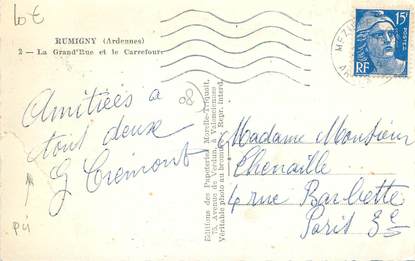 10€
RUMIGNY (Ardennes)
2 — La Grand'Rue et le Carrefour
15F
POSTES
RF
MEZI
AR
Amitiées a
tout deux
G Crémont
P4
8
Editions des Papeteries Morelle-Triquoit,
75, Avenue de Verdun, Valenciennes
Véritable photo au bromure - Repr. interd.
Madame Monsieur
Chenaille
4 rue Barbette
Paris 3e